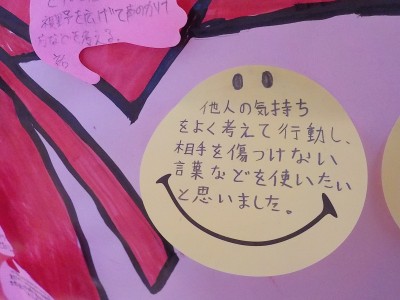 相手を広げて声のかけ
方などを考える。
他人の気持ち
をよく考えて行動し、
相手を傷つけない
言葉などを使いたい
と思いました。